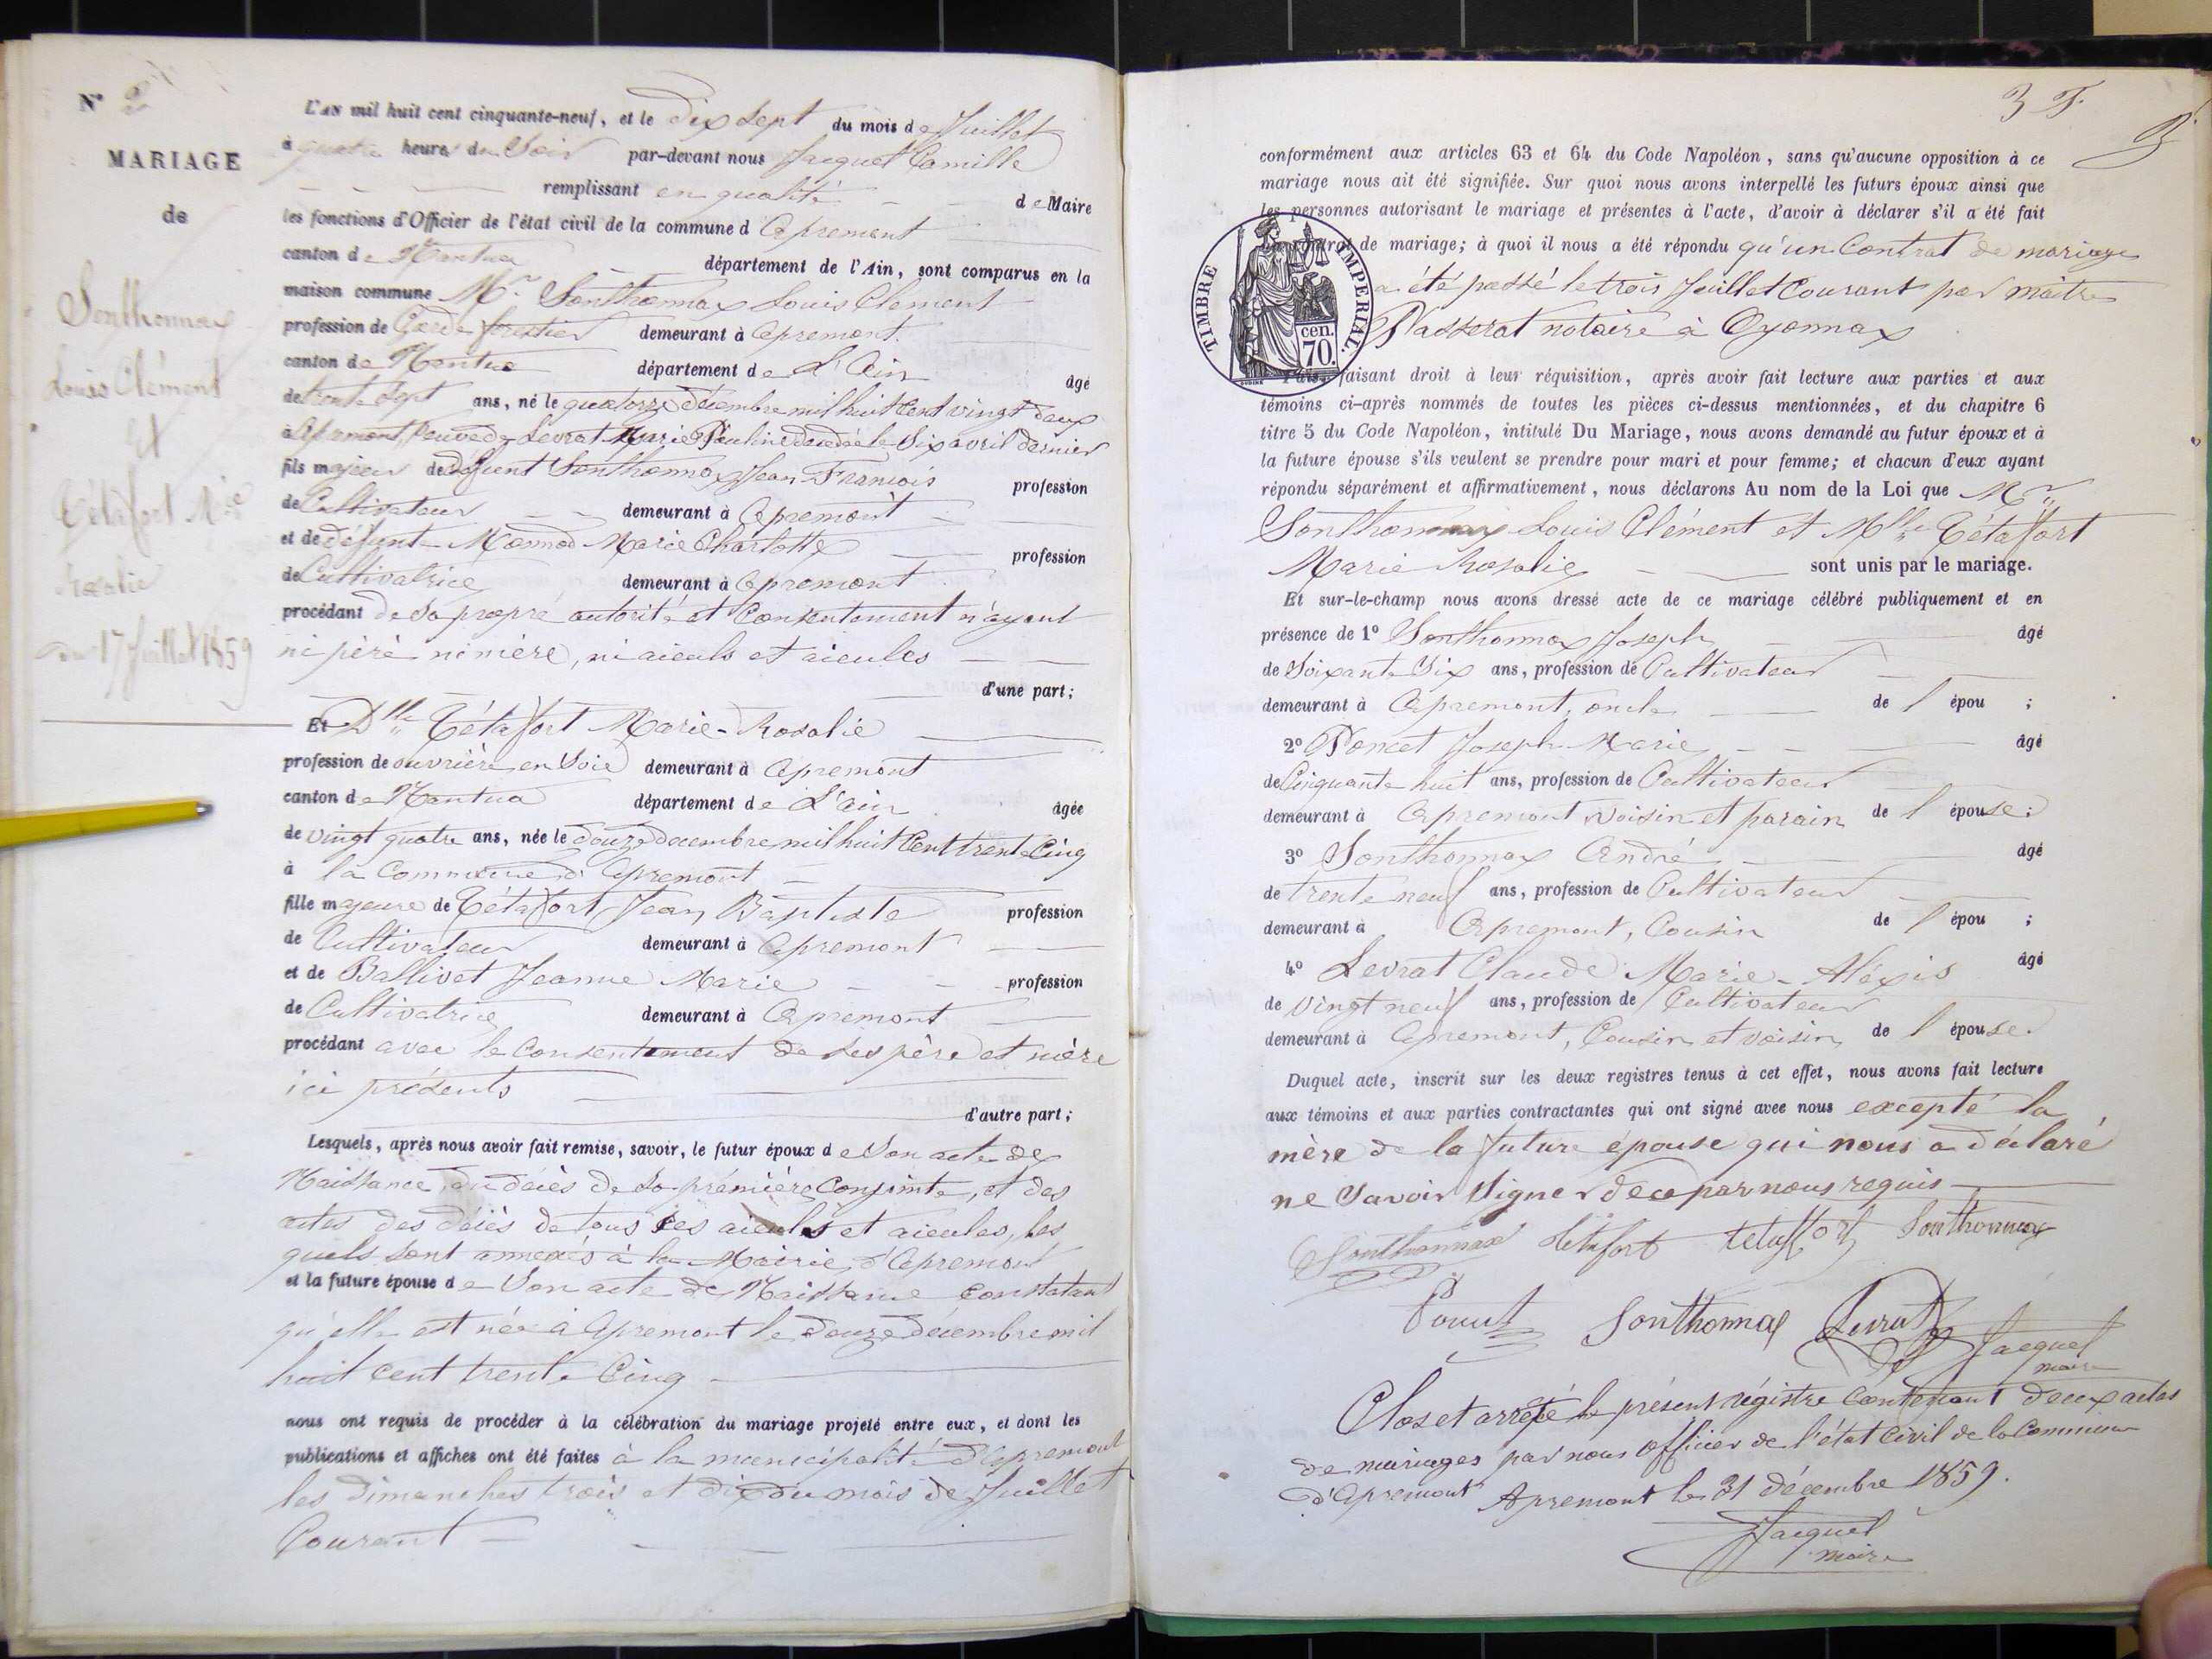 N° 2
MARIAGE
de
Sonthonnax
Louis Clément
Et
Tétafort Mie
Rosalie
du 17 Juillet 1859
L'AN mil huit cent cinquante-neuf, et le Dix Sept du mois de Juillet
à quatre heures du Soir par-devant nous Jacquet Camille
remplissant en qualité de Maire
les fonctions d'Officier de l'état civil de la commune d Apremont
canton de Nantua département de l'Ain, sont comparus en la
maison commune Mr Sonthonnax Louis Clement
profession de Garde forestier demeurant à Apremont
canton de Nantua département de L'Ain âgé
de trente Sept ans, né le quatorze décembre mil huit Cent vingt deux
à Apremont, veuf de Levrat Marie Pauline décédée le Six avril dernier
fils majeur de défunt Sonthonnax Jean François profession
de Cultivateur demeurant à Apremont
et de défunte Monnod Marie Charlotte profession
de Cultivatrice demeurant à Apremont
procédant de Sa propre autorité et Consentement n'ayant
ni père ni mère, ni aieuls et aieules
d'une part;
Et Dlle Tétafort Marie-Rosalie
profession de ouvrière en Soie demeurant à Apremont
canton de Nantua département de L'ain âgée
de vingt quatre ans, née le douze decembre mil huit Cent trente Cinq
à la Commune d'Apremont
fille majeure de Tétafort Jean Baptiste profession
de Cultivateur demeurant à Apremont
et de Ballivet Jeanne Marie profession
de Cultivatrice demeurant à Apremont
procédant avec le Consentement de Ses père et mère
ici présents
d'autre part;
Lesquels, après nous avoir fait remise, savoir, le futur époux de Son acte de
Naissance, du décès de Sa première Conjointe, et des
actes des décès de tous Ses aieuls et aieules, les
quels sont annexés à la Mairie d'Apremont
et la future épouse de Son acte de Naissance Constatant
qu'elle est née à Apremont le douze décembre mil
huit cent trente Cinq
nous ont requis de procéder à la célébration du mariage projeté entre eux, et dont les
publications et affiches ont été faites à la municipalité d'Apremont
les dimanches trois et dix du mois de Juillet
Courant
3 F.
conformément aux articles 63 et 64 du Code Napoléon, sans qu'aucune opposition à ce
mariage nous ait été signifiée. Sur quoi nous avons interpellé les futurs époux ainsi que
les personnes autorisant le mariage et présentes à l'acte, d'avoir à déclarer s'il a été fait
contrat de mariage; à quoi il nous a été répondu qu'un Contrat de mariage
a été passé le trois Juillet Courant par maître
Passerat notaire à Oyonnax
TIMBRE IMPERIAL.
cen.
70.
Puis, faisant droit à leur réquisition, après avoir fait lecture aux parties et aux
témoins ci-après nommés de toutes les pièces ci-dessus mentionnées, et du chapitre 6
titre 5 du Code Napoléon, intitulé Du Mariage, nous avons demandé au futur époux et à
la future épouse s'ils veulent se prendre pour mari et pour femme; et chacun d'eux ayant
répondu séparément et affirmativement, nous déclarons Au nom de la Loi que Mr
Sonthonnax Louis Clément et Mlle Tétafort
Marie Rosalie sont unis par le mariage.
Et sur-le-champ nous avons dressé acte de ce mariage célébré publiquement et en
présence de 1° Sonthonnax Joseph âgé
de Soixante Six ans, profession de Cultivateur
demeurant à Apremont, oncle de l épou ;
2° Poncet Joseph Marie âgé
de Cinquante huit ans, profession de Cultivateur
demeurant à Apremont voisin et parain de l épouse;
3° Sonthonnax André âgé
de trente neuf ans, profession de Cultivateur
demeurant à Apremont, Cousin de l épou ;
4° Levrat Claude Marie-Aléxis âgé
de vingt neuf ans, profession de Cultivateur
demeurant à Apremont, Cousin et voisin de l épouse.
Duquel acte, inscrit sur les deux registres tenus à cet effet, nous avons fait lecture
aux témoins et aux parties contractantes qui ont signé avec nous excepté la
mère de la future épouse qui nous a déclaré
ne Savoir Signer de ce par nous requis
Sonthonnax tétafort tetaffort Sonthonnax
Poncet Sonthonnax Levrat
Jacquet
maire
Clos et arrêté le présent régistre Contenant deux actes
de mariages par nous officier de l'état Civil de la Commune
d'Apremont Apremont le 31 décembre 1859.
Jacquet
maire